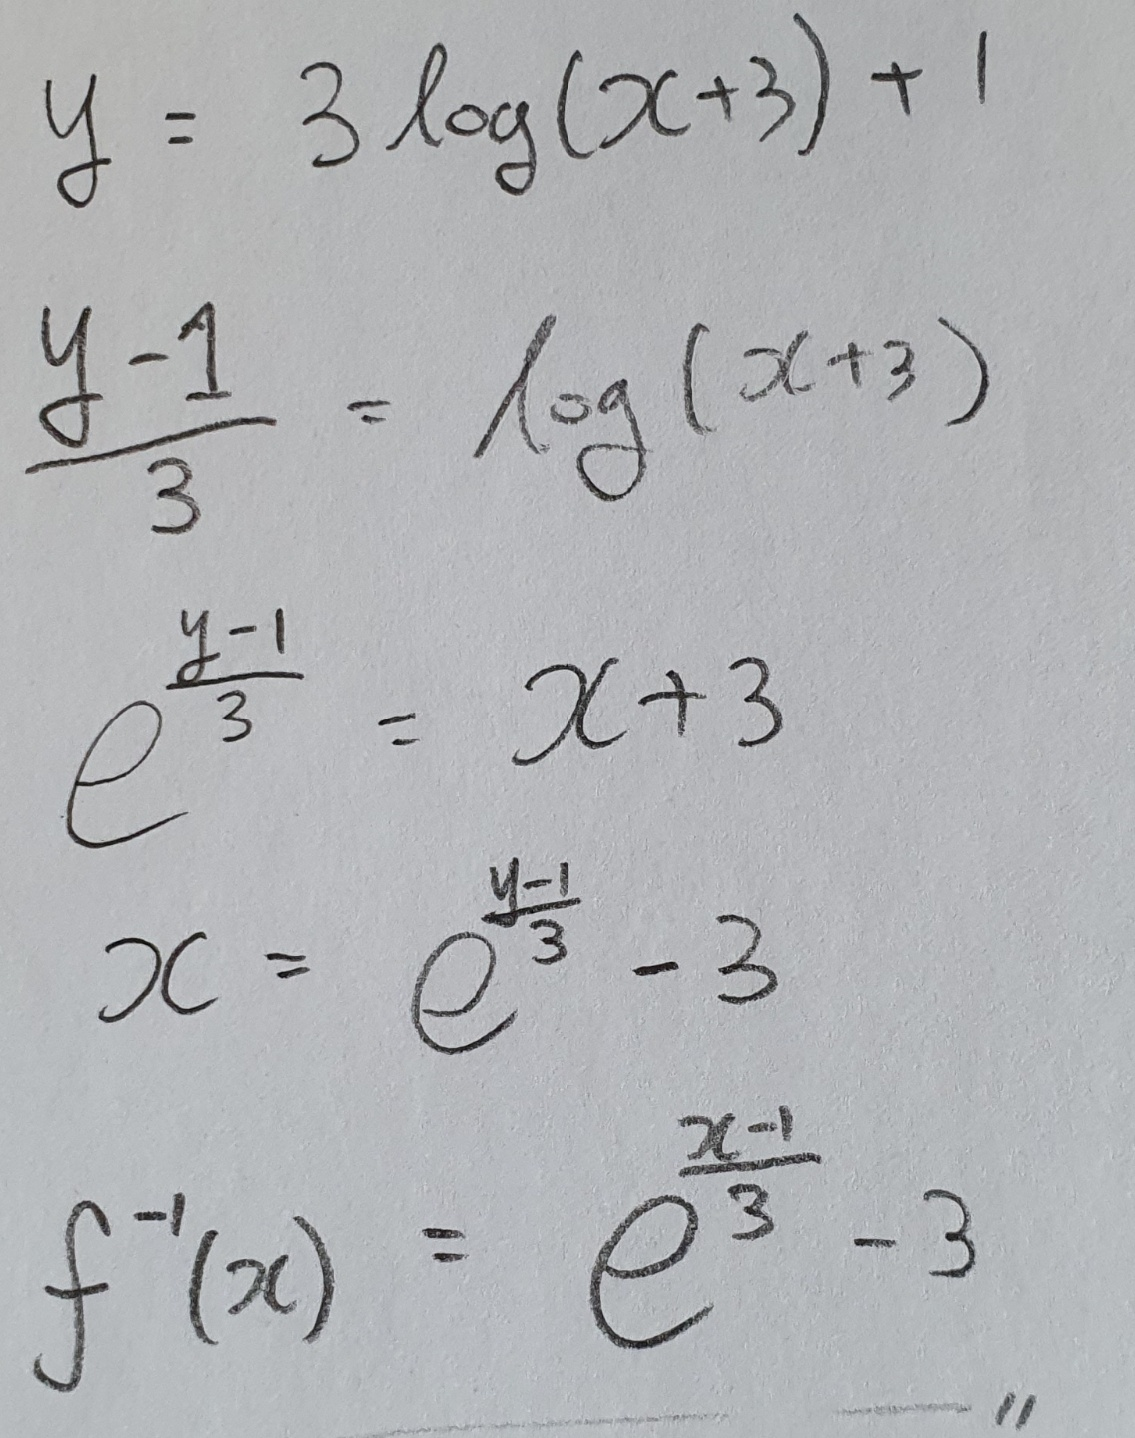 y = 3 log(x+3) + 1
(y-1)/3 = log(x+3)
e^((y-1)/3) = x+3
x = e^((y-1)/3) - 3
f^(-1)(x) = e^((x-1)/3) - 3
〃